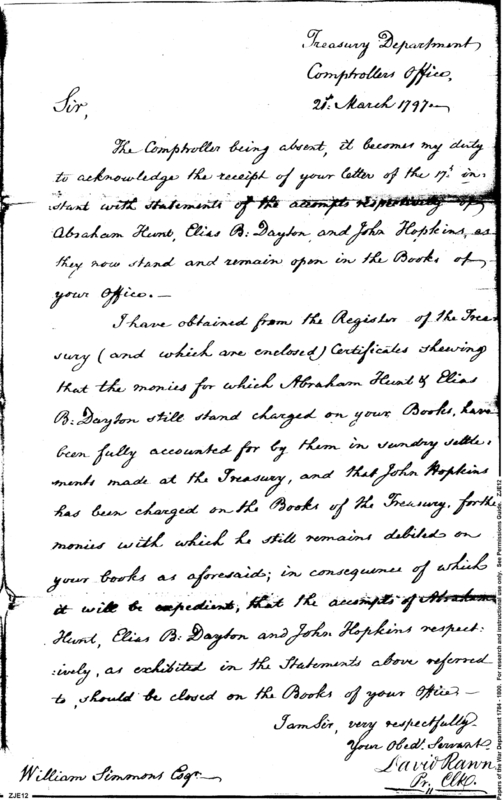 Treasury Department
Comptrollers Office,
21st. March 1797
Sir,
The Comptroller being absent, it becomes my duty
to acknowledge the receipt of your letter of the 17th. in-
stant with statements of the accompts respectively of
Abraham Hunt, Elias B: Dayton and John Hopkins, as
they now stand and remain open in the Books of
your Office. —
I have obtained from the Register of the Trea
sury (and which are enclosed) Certificates shewing
that the monies for which Abraham Hunt & Elias
B: Dayton still stand charged on your Books, have
been fully accounted for by them in sundry settle:
ments made at the Treasury, and that John Hopkins
has been charged on the Books of the Treasury, for the
monies with which he still remains debited on
your books as aforesaid; in consequence of which
it will be expedient, that the accompts of Abraham
Hunt, Elias B: Dayton and John Hopkins respect:
:ively, as exhibited in the Statements above referred
to, should be closed on the Books of your Office —
I am Sir, very respectfully
Your Obedt. Servant
David Rawn
Pr. Clk.
William Simmons Esqr
ZJE12
Papers of the War Department 1784 - 1800. For research and instructional use only. See Permissions Guide. ZJE12